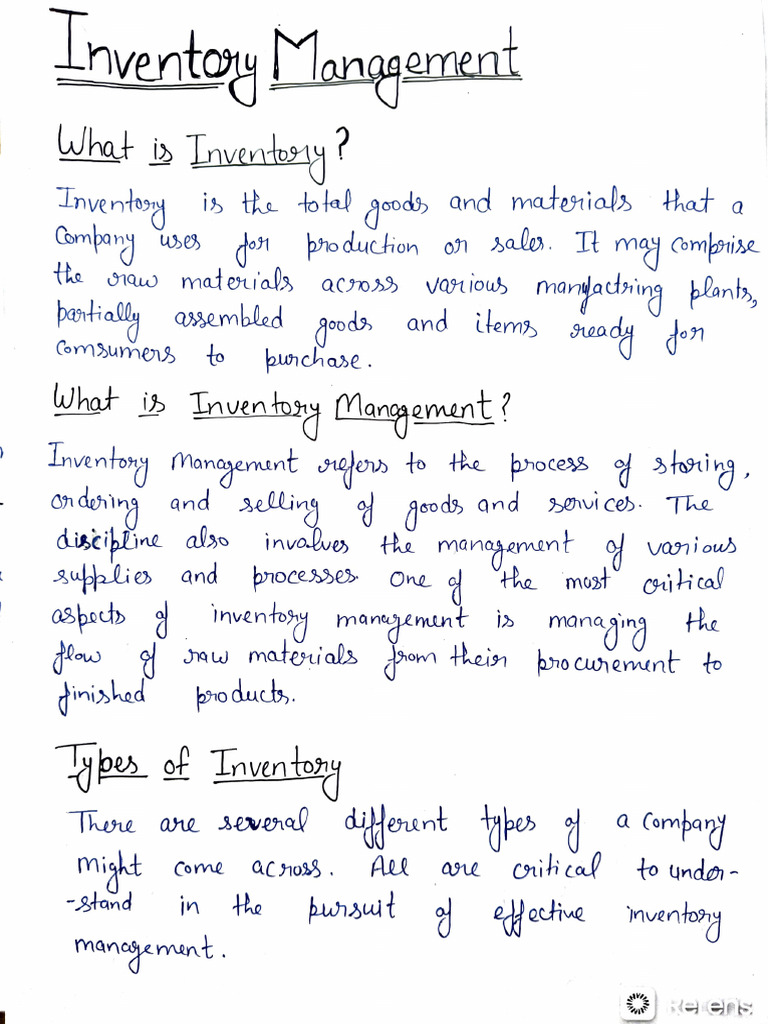 Inventory Management
What is Inventory?
Inventory is the total goods and materials that a
Company uses for production or sales. It may comprise
the raw materials across various manufactring plants,
partially assembled goods and items ready for
comsumers to purchase.
What is Inventory Management?
Inventory Management refers to the process of storing,
ordering and selling of goods and services. The
discipline also involves the management of various
supplies and processes. One of the most critical
aspects of inventory management is managing the
flow of raw materials from their procurement to
finished products.
Types of Inventory
There are several different types of a company
might come across. All are critical to under-
-stand in the pursuit of effective inventory
management.